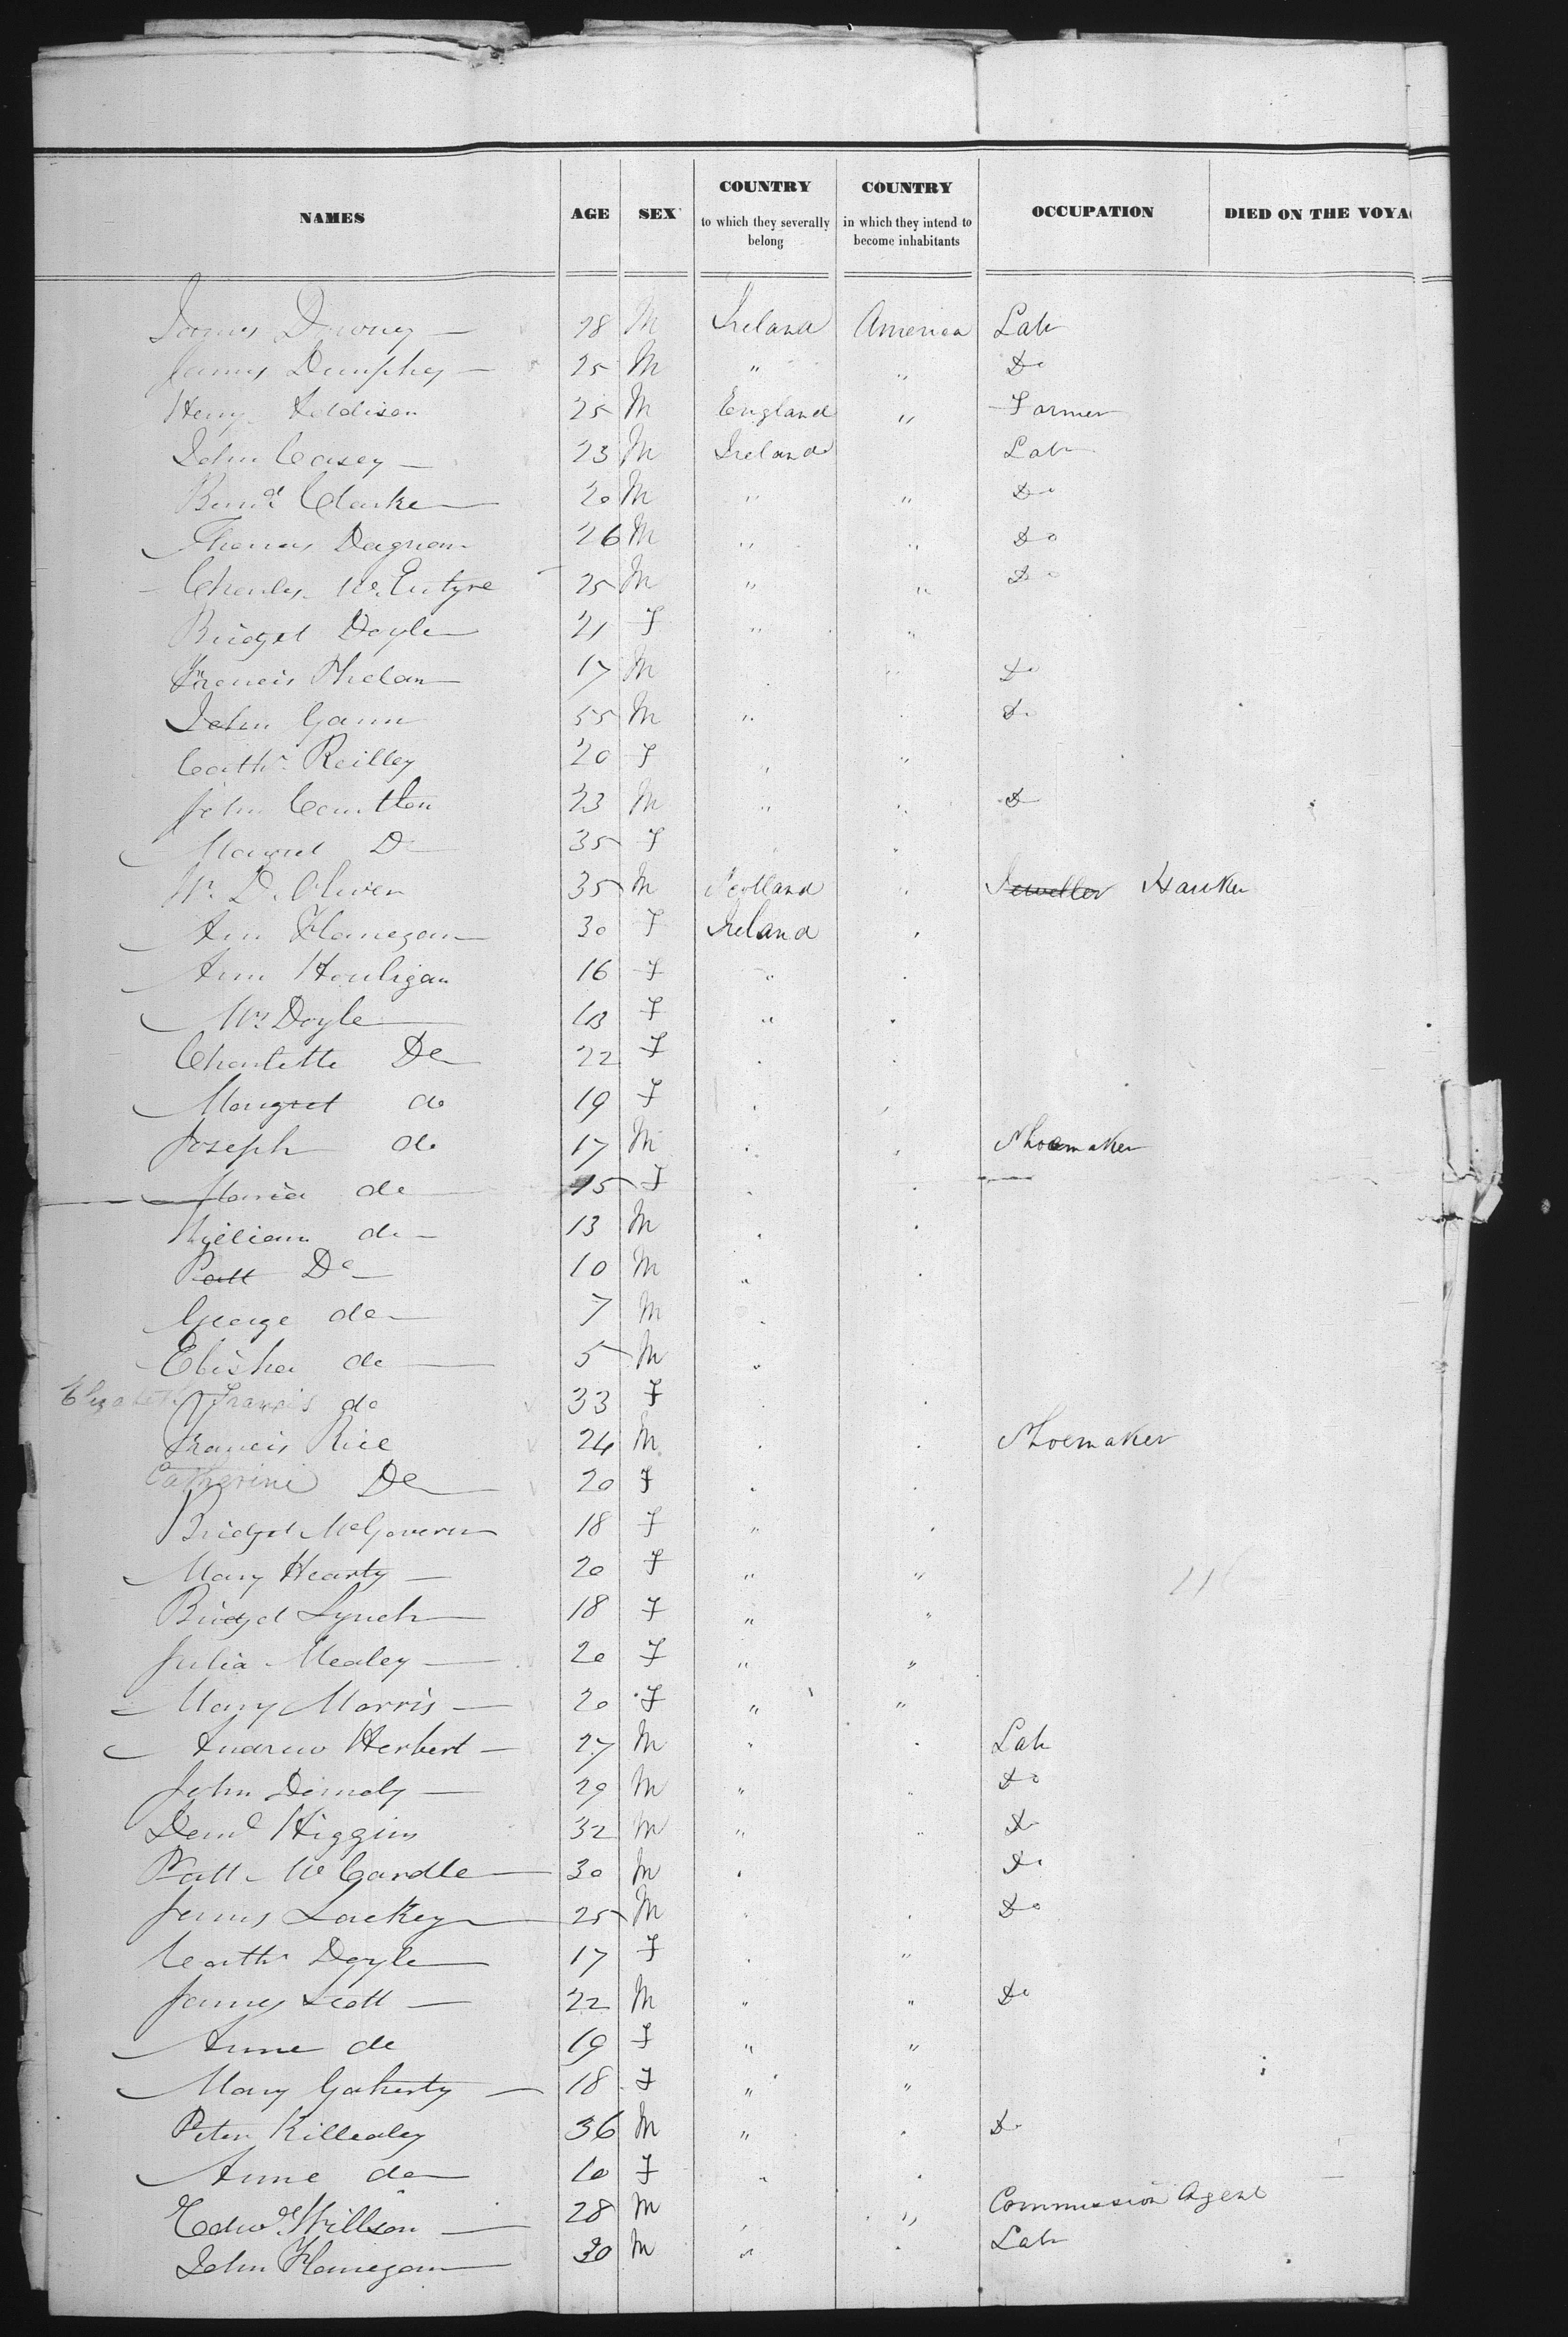 NAMES AGE SEX COUNTRY to which they severally belong COUNTRY in which they intend to become inhabitants OCCUPATION DIED ON THE VOYA
James Downey 28 M Ireland America Lab
James Dumphey 25 M " " Do
Heny Addison 25 M England " Farmer
John Casey 23 M Ireland Lab
Bernd Clarke 20 M " " Do
Thomas Dagnan 26 M " " Do
Charles McEntyre 25 M " " Do
Bridget Doyle 21 F " "
Francis Phelan 17 M " Do
John Gann 55 M " Do
Cathe Reilley 20 F " "
John Countton 23 M " " Do
Margret Do 35 F "
Wm D. Oliver 35 M Scotland " Jeweller Hawker
Ann Flanegan 30 F Ireland "
Ann Houligan 16 F " "
Mrs Doyle F " "
Charlotte Do 22 F " "
Margret do 19 F " "
Joseph do 17 M " " Shoemaker
Maria do 15 F " "
William do 13 M " "
Patt Do 10 M " "
George do 7 M "
Elisha do 5 M " "
Elizabeth Francis do 33 F " "
Francis Rice 24 M " " Shoemaker
Catherine Do 20 F " "
Bridget McGovern 18 F " "
Mary Hearty 20 F " "
Bridget Lynch 18 F " "
Julia Mealey 20 F " "
Mary Morris 20 F " "
Andrew Herbert 27 M " " Lab
John 29 M " " Do
Higgins 32 M " " Do
Patt McCardle 30 M " Do
James Lackey 25 M " " Do
Cathe Doyle 17 F " "
James Scott 22 M " " Do
Anne do 19 F " "
Mary Gaherty 18 F " "
Peter Killealey 36 M " " Do
Anne do 10 F " "
Edwd Willson 28 M " " Commission Agent
John Flanegan 30 M " " Lab